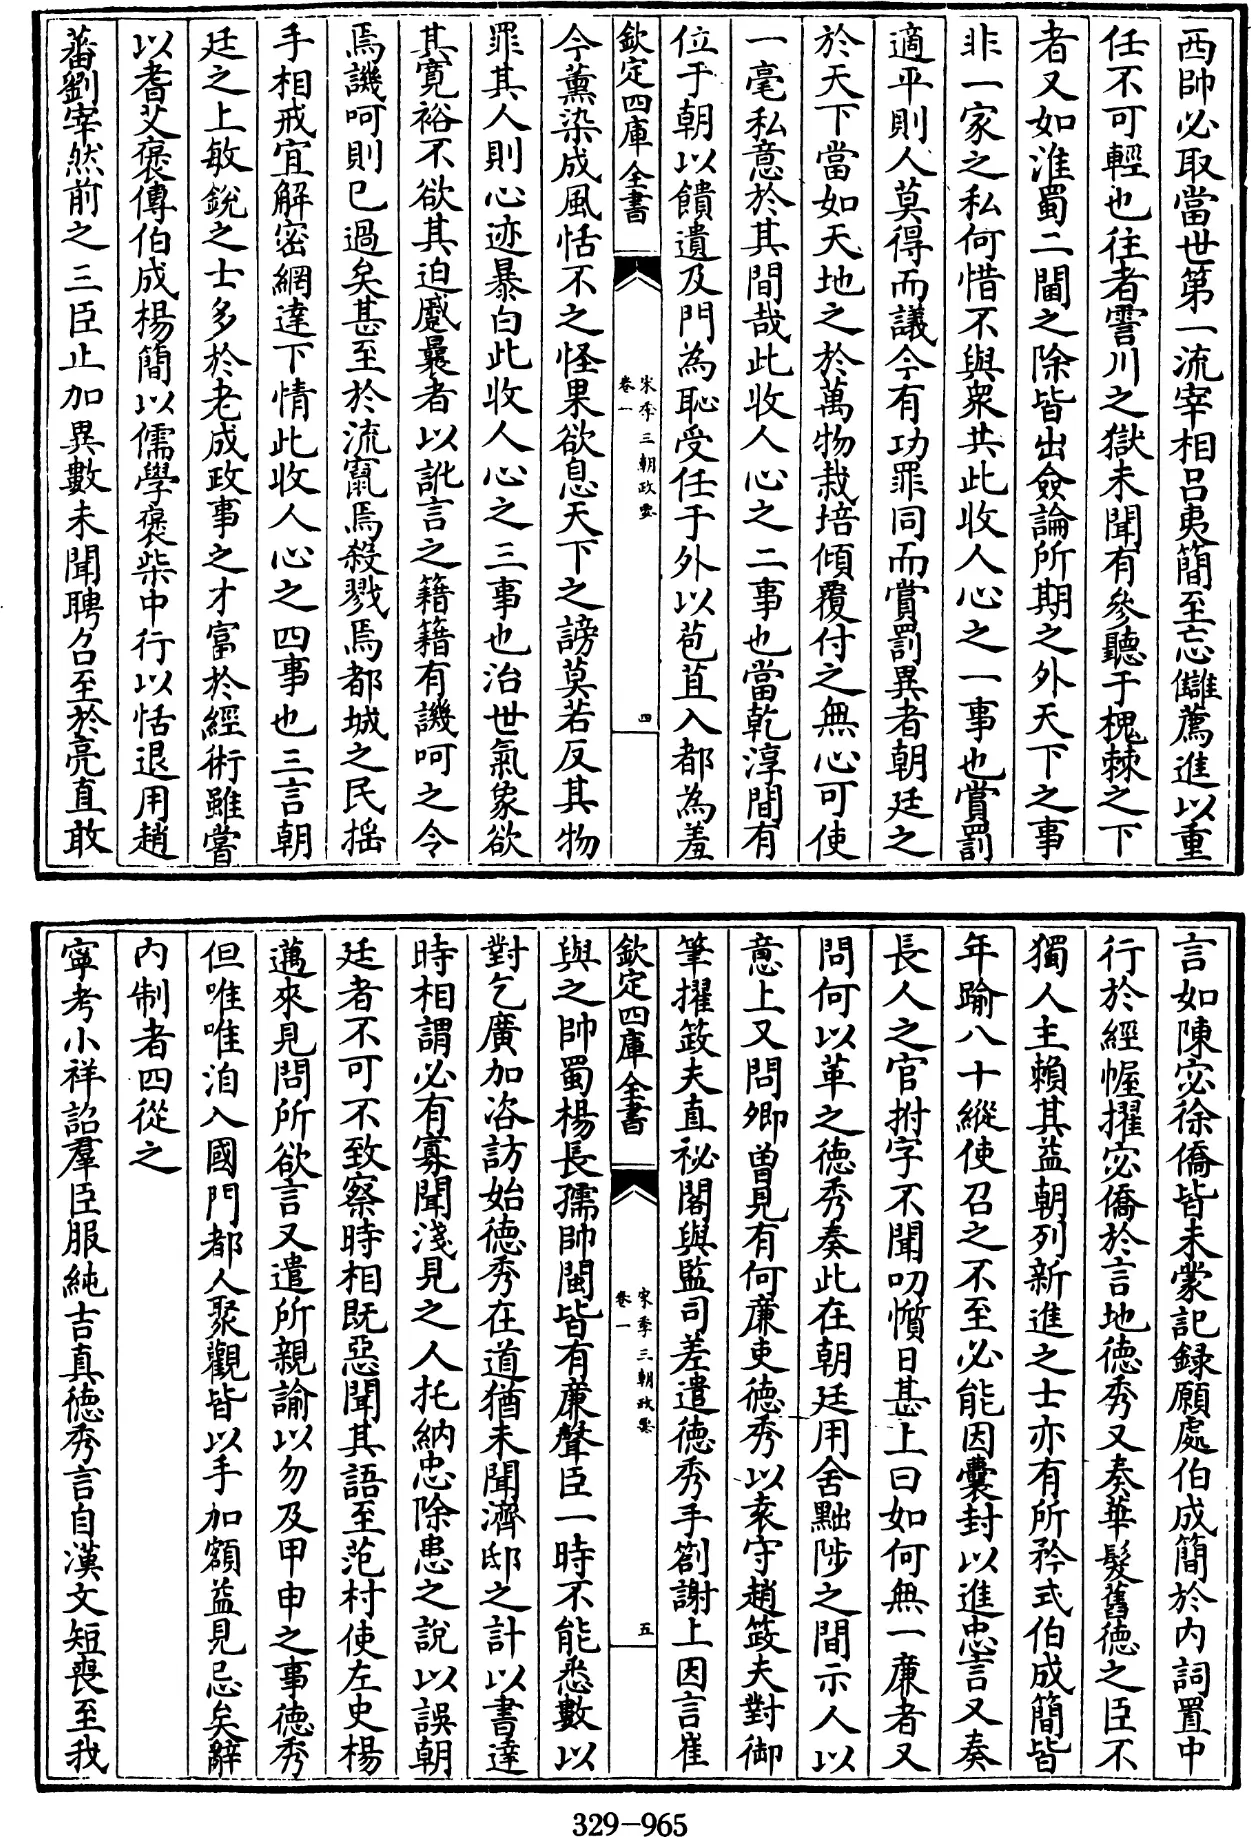 西帥必取當世第一流宰相呂夷簡至忘讎薦進以重
任不可輕也往者霅川之獄未聞有參聽于槐棘之下
者又如淮蜀二閫之除皆出僉論所期之外天下之事
非一家之私何惜不與衆共此收人心之一事也賞罰
適平則人莫得而議今有功罪同而賞罰異者朝廷之
於天下當如天地之於萬物栽培傾覆付之無心可使
一毫私意於其間哉此收人心之二事也當乾淳間有
位于朝以饋遺及門為恥受任于外以苞苴入都為羞
欽定四庫全書
宋季三朝政要
卷一
四
今薰染成風恬不之怪果欲息天下之謗莫若反其物
罪其人則心迹暴白此收人心之三事也治世氣象欲
其寛裕不欲其迫蹙曩者以訛言之籍籍有譏呵之令
焉譏呵則已過矣甚至於流竄焉殺戮焉都城之民揺
手相戒宜解密網達下情此收人心之四事也三言朝
廷之上敏鋭之士多於老成政事之才富於經術雖嘗
以耆艾褒傅伯成楊簡以儒學褒柴中行以恬退用趙
蕃劉宰然前之三臣止加異數未聞聘召至於亮直敢
言如陳宓徐僑皆未蒙記録願處伯成簡於内詞置中
行於經幄擢宓僑於言地德秀又奏華髮舊德之臣不
獨人主賴其益朝列新進之士亦有所矜式伯成簡皆
年踰八十縱使召之不至必能因囊封以進忠言又奏
長人之官拊字不聞叨懫日甚上曰如何無一廉者又
問何以革之德秀奏此在朝廷用舍黜陟之間示人以
意上又問卿曽見有何廉吏德秀以袁守趙䇲夫對御
筆擢䇲夫直祕閣與監司差遣德秀手劄謝上因言崔
欽定四庫全書
宋季三朝政要
卷一
五
與之帥蜀楊長孺帥閩皆有廉聲臣一時不能悉數以
對乞廣加咨訪始德秀在道猶未聞濟邸之計以書達
時相謂必有寡聞淺見之人托納忠除患之說以誤朝
廷者不可不致察時相既惡聞其語至范村使左史楊
邁來見問所欲言又遣所親諭以勿及甲申之事德秀
但唯唯洎入國門都人聚觀皆以手加額益見忌矣辭
内制者四從之
寧考小祥詔羣臣服純吉真德秀言自漢文短喪至我
329-965